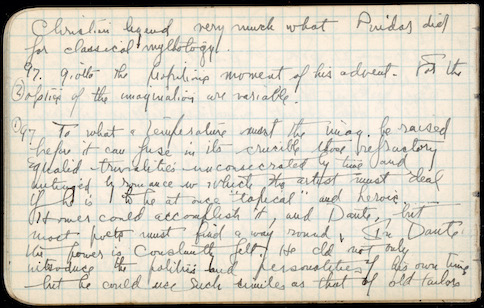 Christian legend very much what Pindar did
for classical mythology.
97. Giotto the propitious moment of his advent. For the
2 optics of the imagination are variable.
1 97 To what a temperature must the imag. be raised
before it can fuse in its crucible those refractory
squalid trivialities unconsecrated by time and
untinged by romance w which the artist must deal
if he is to be at once "topical" and heroic.
Homer could accomplish it, and Dante, but
most poets must find a way round. In Dante
this power is constantly felt. He did not only
introduce the politics and personalities of his own time
but he could use such similes as that of old tailors